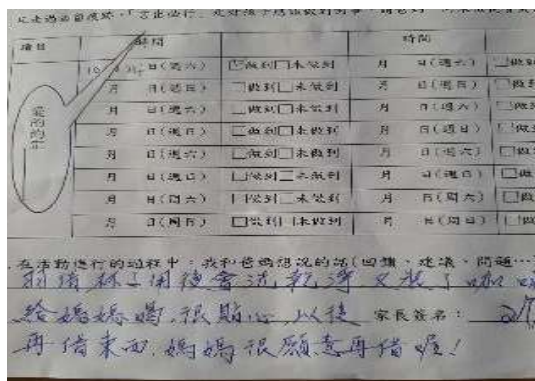 項目 時間 時間
10月31日(週六) 做到 未做到 月 日(週六) 做到
月 日(週日) 做到 未做到 月 日(週日) 做到
月 日(週六) 做到 未做到 月 日(週六) 做
月 日(週日) 做到 未做到 月 日(週日) 做
月 日(週六) 做到 未做到 月 日(週六) 做
月 日(週日) 做到 未做到 月 日(週日) 做
月 日(週六) 做到 未做到 月 日(週六) 做
月 日(週日) 做到 未做到 月 日(週日) 做
愛的約定
在活動進行的過程中,我和爸媽想說的話(回饋、建議、問題…
用後會洗乾淨又裝了咖
給媽媽喝,很貼心,以後 家長簽名:
再借東西,媽媽很願意再借喔!